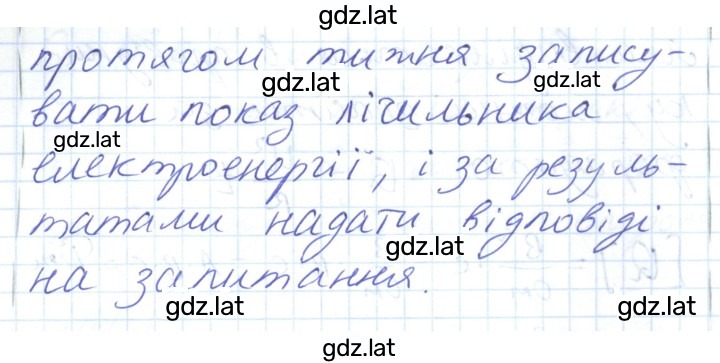 gdz.lat
протягом тижня запису-
gdz.lat gdz.lat
вати показ лічильника
gdz.lat
електроенергії, і за резуль-
татами надати відповіді
gdz.lat
на запитання.
gdz.lat gdz.lat
gdz.lat